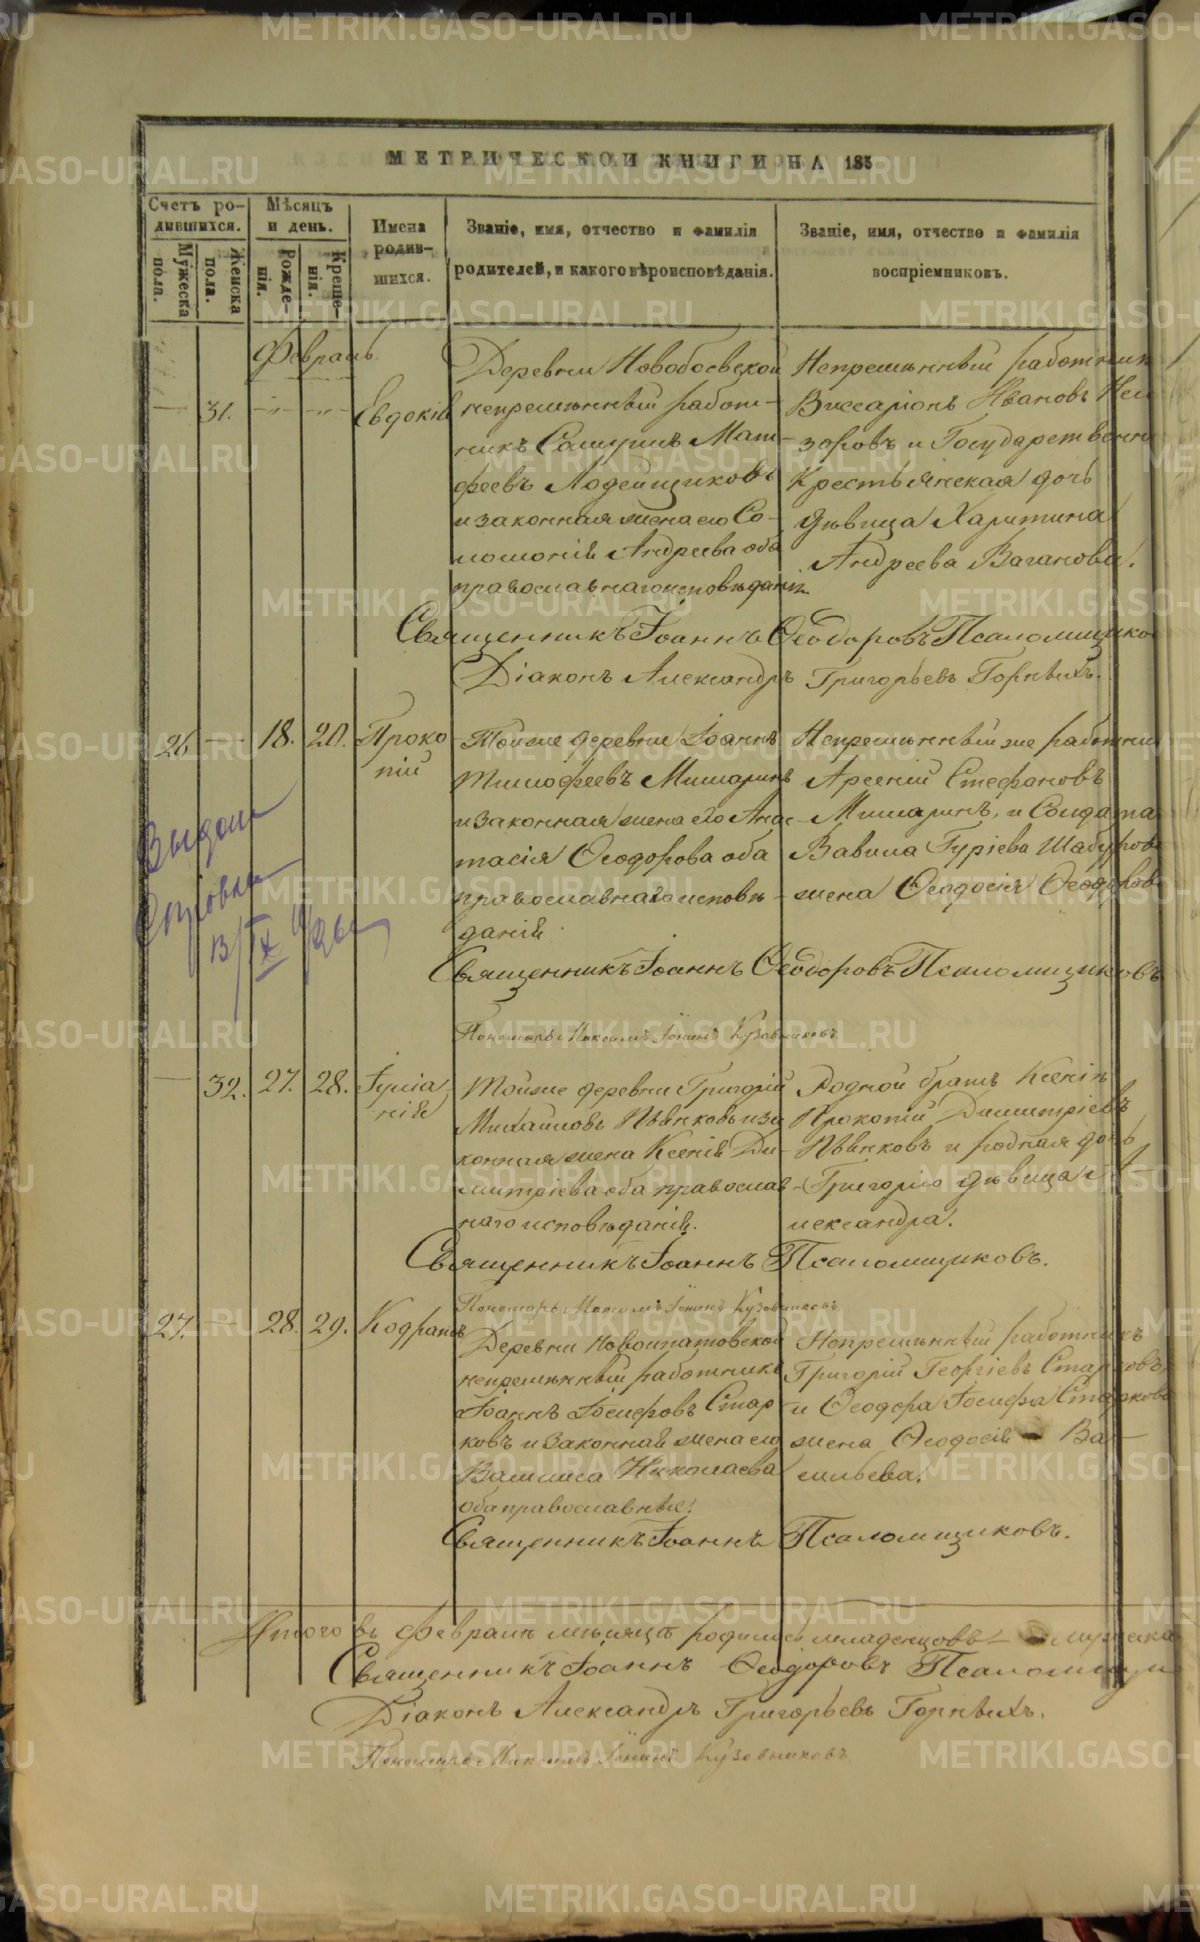 МЕТРИЧЕСКОЙ КНИГИ НА 185
Счетъ ро-
дившихся.
Мужеска
пола.
Женска
пола.
Мѣсяцъ
и день.
Рожде-
нія.
Креще-
нія.
Имена
родив-
шихся.
Званіе, имя, отчество и фамилія
родителей, и какого вѣроисповѣданія.
Званіе, имя, отчество и фамилія
воспріемниковъ.
Февраль
31.
Евдокія
Деревни Новобоевской
непремѣнный работ-
никъ Самуилъ Мат-
феевъ Лодейщиковъ
и законная жена его Со-
ломонія Андреева оба
православнаго исповѣданія.
Непремѣнный работникъ
Виссаріонъ Ивановъ
заровъ и Государственно
Крестьянская дочь
дѣвица Харитина
Андреева Ваганова.
Священникъ Іоаннъ Ѳеодоровъ Псаломщико
Діаконъ Александръ Григорьевъ Горныхъ.
26 — 18. 20.
Проко
пій
Тойже деревни Іоаннъ
Тимофеевъ Мишаринъ
и законная жена его Анас-
тасія Ѳеодорова оба
православнаго исповѣ-
данія
Непремѣнный же работни
Арсеній Стефановъ
Мишаринъ, и Солдата
Вавила Гуріева Шабуров
жена Ѳеодосія Ѳеодоров
Выдана
Справка
13/IX 19/26 г
Священникъ Іоаннъ Ѳеодоровъ Псаломщиковъ
Пономарь Максимъ Іонинъ Кузовниковъ
— 32. 27. 28.
Іуліа
нія
Тойже деревни Григорій
Михайловъ Пьянковъ и за
конная жена Ксенія Ди-
митріева оба православ-
наго исповѣданія.
Родной братъ Ксеніи
Прокопій Димитріевъ
Пьянковъ и родная дочь
Григорію дѣвица А
лександра.
Священникъ Іоаннъ Псаломщиковъ.
Пономарь Максимъ Іонинъ Кузовниковъ
27. — 28. 29.
Кодратъ
Деревни Новоипатовской
непремѣнный работникъ
Іоаннъ Іосифовъ Стар
ковъ и законная жена его
Васлиса Николаева
оба православные.
Непремѣнный работникъ
Григорій Георгіевъ Старковъ
и Ѳеодора Іосифа Старкова
жена Ѳеодосія Ва-
сильева.
Священникъ Іоаннъ Псаломщиковъ.
Итого въ Февралѣ мѣсяцѣ родилось младенцовъ — мужеска
Священникъ Іоаннъ Ѳеодоровъ Псаломщи
Діаконъ Александръ Григорьевъ Горныхъ.
Пономарь Максимъ Іонинъ Кузовниковъ
METRIKI.GASO-URAL.RU